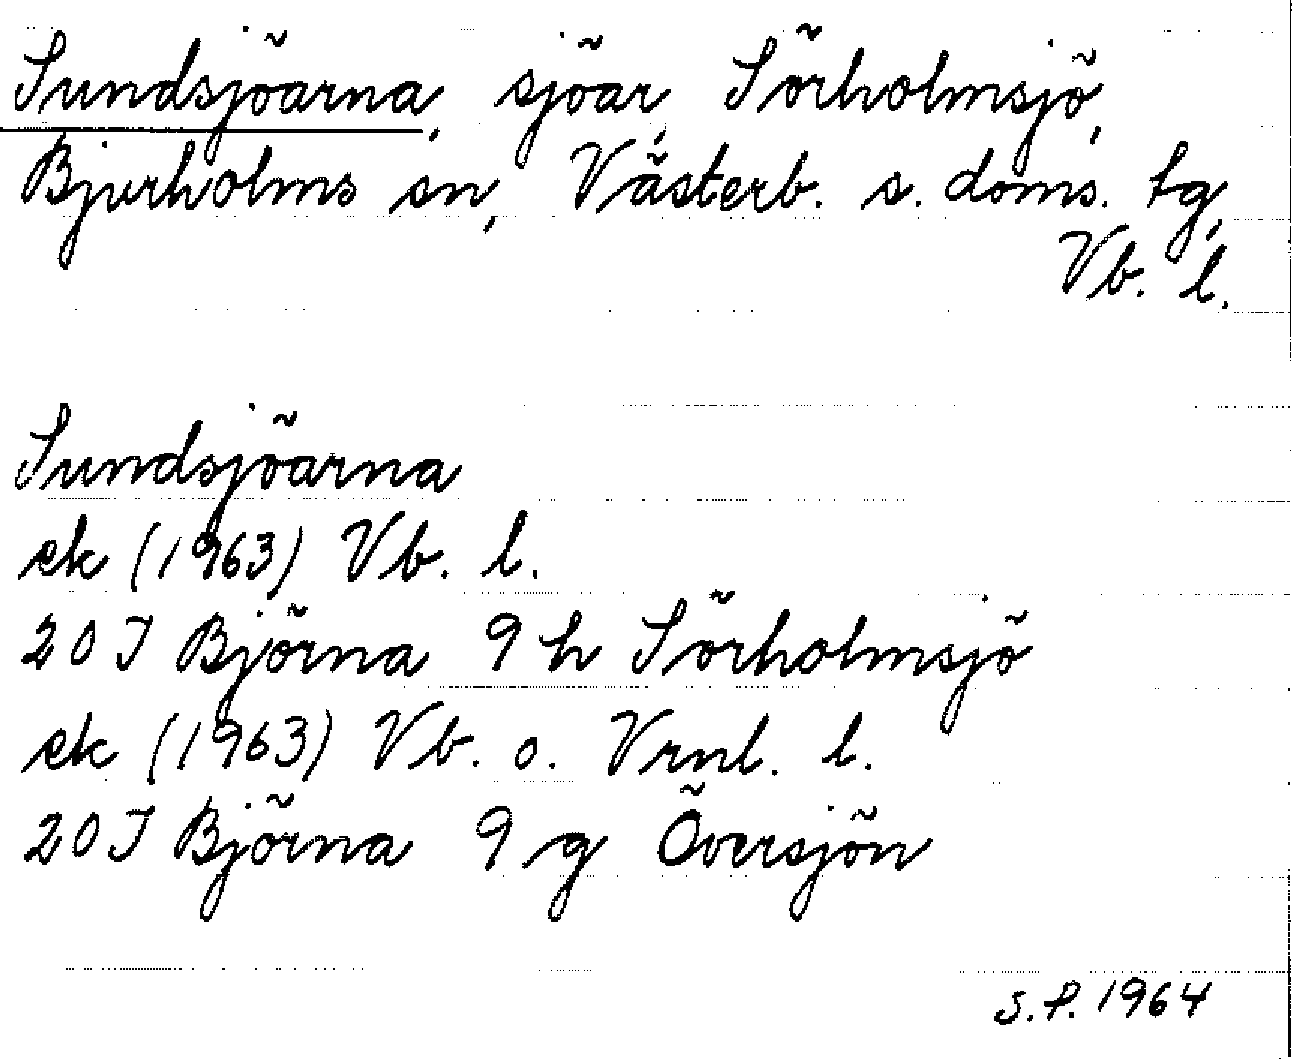 Sundsjöarna, sjöar, Sörholmsjö,
Bjurholms sn, Västerb. s. doms. tg,
Vb. l.
Sundsjöarna
ek (1963) Vb. l.
20 J Björna 9 h Sörholmsjö
ek (1963) Vb. o. Vrnl. l.
20 J Björna 9 g Översjön
S.P. 1964